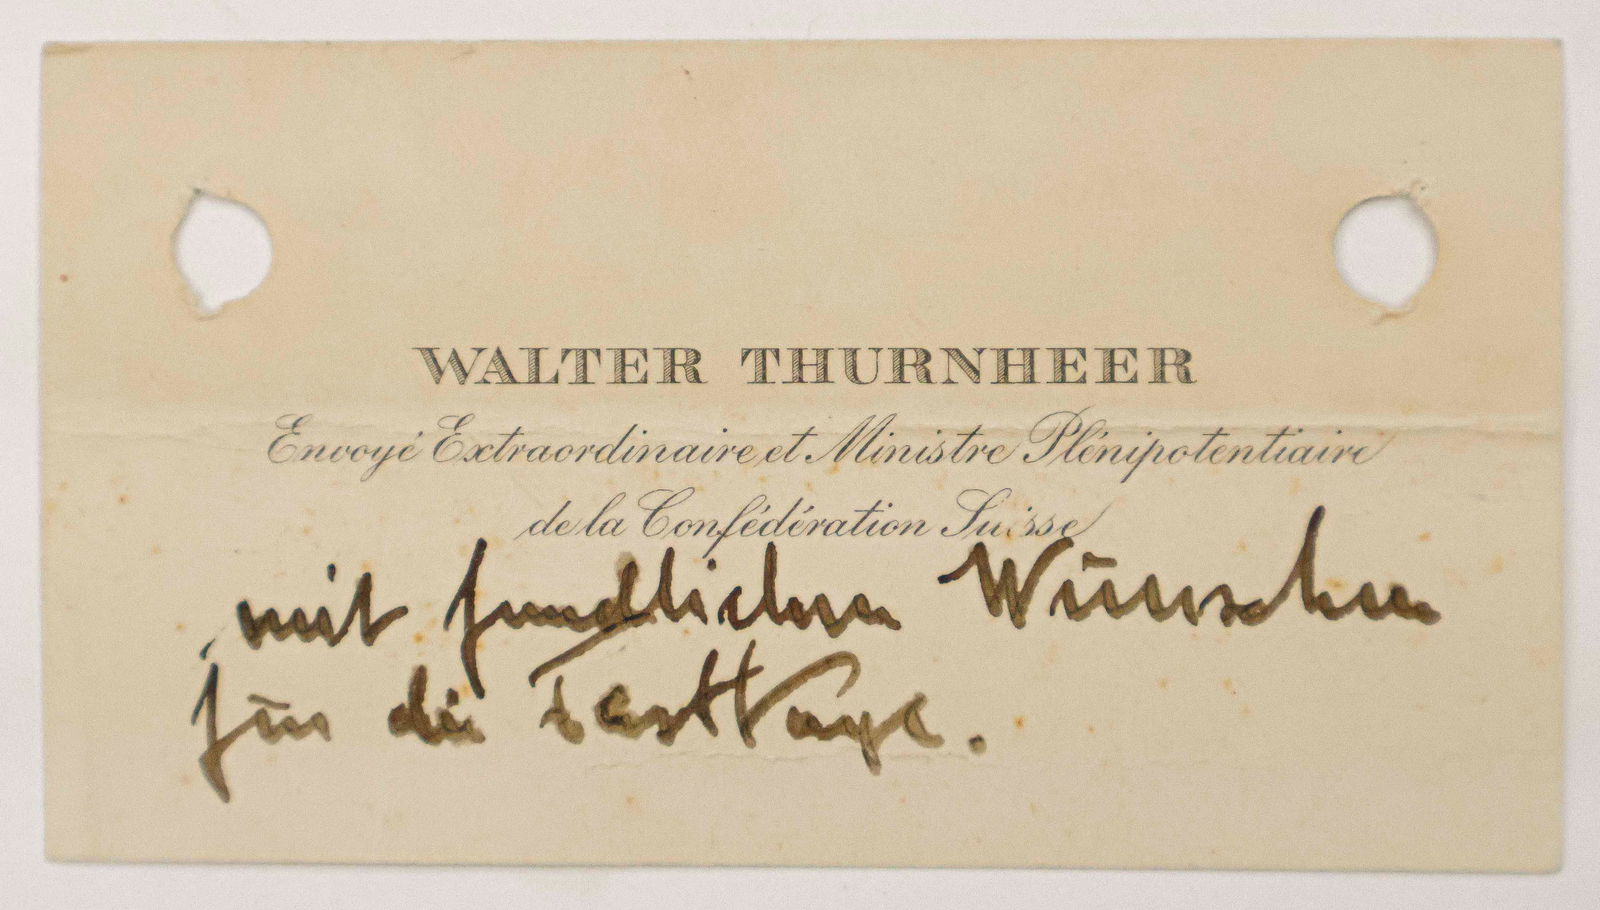 WALTER THURNHEER
Envoyé Extraordinaire et Ministre Plénipotentiaire
de la Confédération Suisse
mit freundlichen Wünschen
für die Festtage.